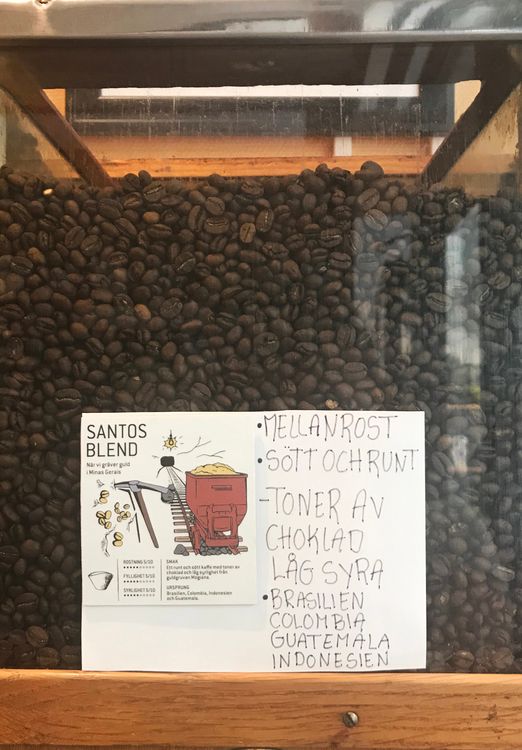 SANTOS
BLEND
När vi gräver guld
i Minas Gerais
ROSTNING 5/10
FYLLIGHET 5/10
SYRLIGHET 5/10
SMAK
Ett runt och sött kaffe med toner av
choklad och låg syrlighet från
guldgruvan Mogiana.
URSPRUNG
Brasilien, Colombia, Indonesien
och Guatemala.
• MELLANROST
• SÖTT OCH RUNT
- TONER AV
CHOKLAD
LÅG SYRA
• BRASILIEN
COLOMBIA
GUATEMALA
INDONESIEN